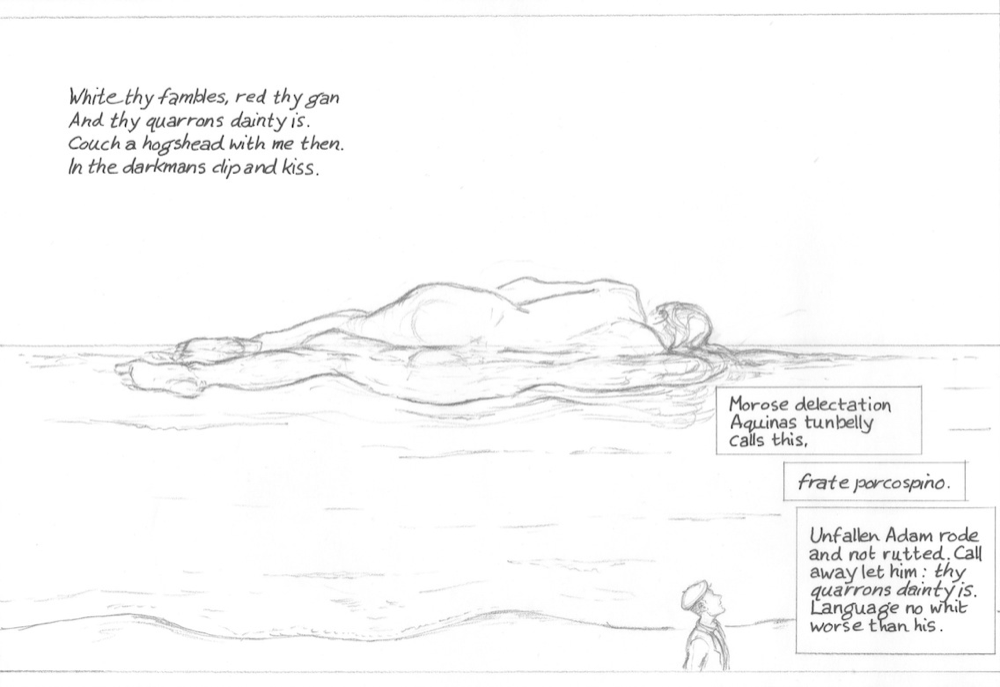 White thy fambles, red thy gan
And thy quarrons dainty is.
Couch a hogshead with me then.
In the darkmans clip and kiss.
Morose delectation
Aquinas tunbelly
calls this,
frate porcospino.
Unfallen Adam rode
and not rutted. Call
away let him: thy
quarrons dainty is.
Language no whit
worse than his.